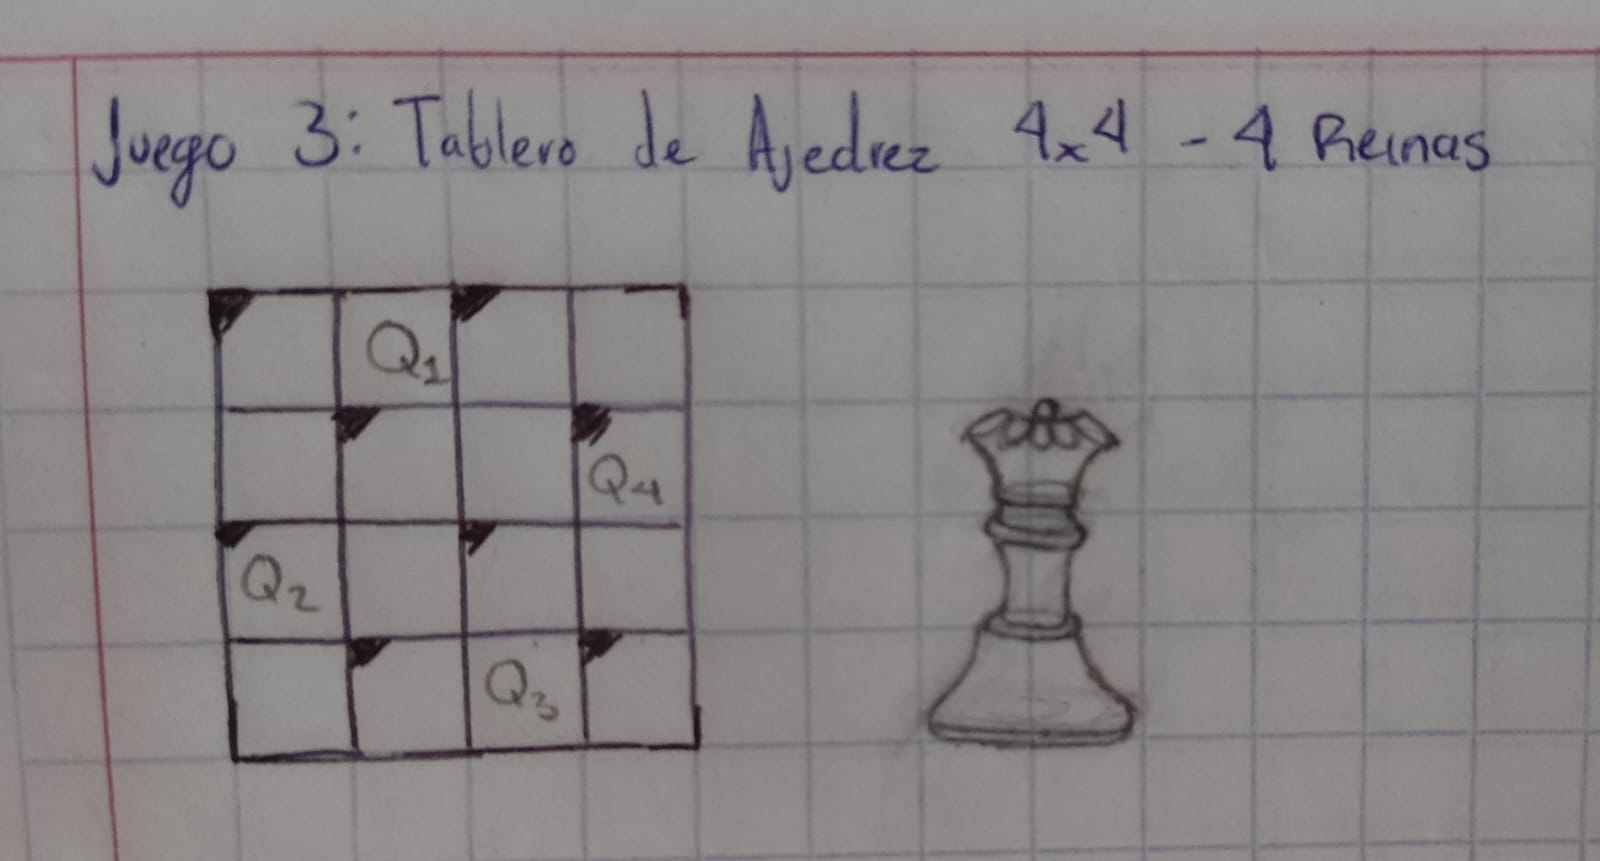 Juego 3: Tablero de Ajedrez 4x4 - 4 Reinas
Q1
Q4
Q2
Q3